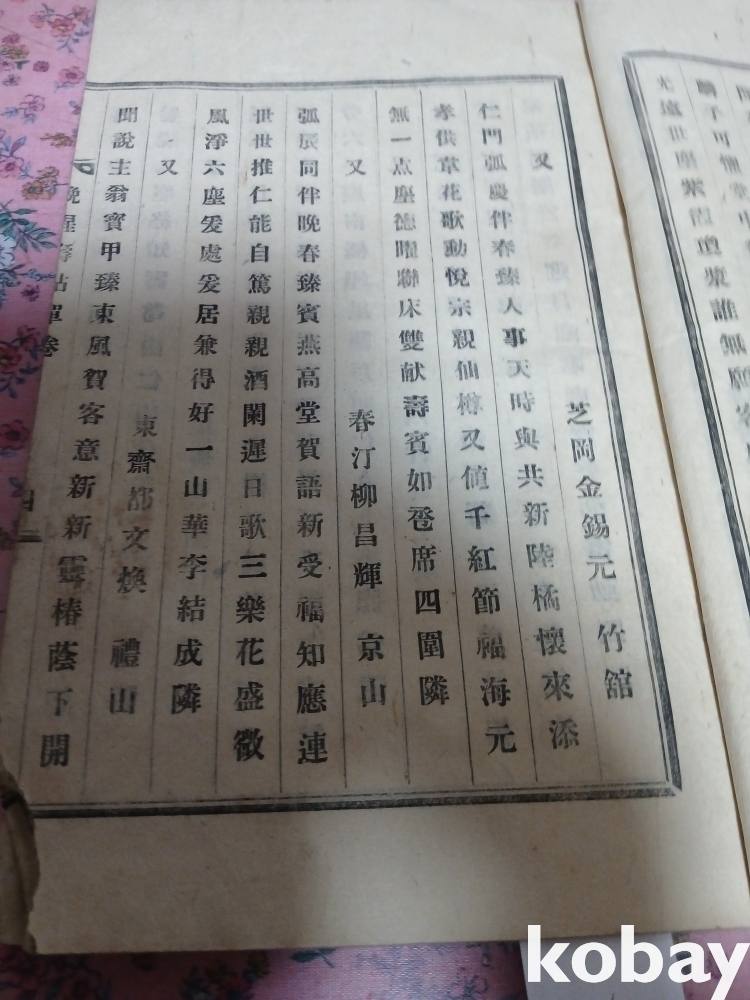 光遠世塵紫霞瓊漿誰無願客
又　芝岡金錫元　竹舘
仁門弧慶伴春臻人事天時與共新陸橘懷來添
孝供韋花歌動悅宗親仙樽又値千紅節福海元
無一点塵德曜聯床雙献壽賓如卺席四圍隣
又　春汀柳昌輝　京山
弧辰同伴晩春臻賓燕高堂賀語新受福知應連
世世推仁能自篤親親酒闌遲日歌三樂花盛徵
風淨六塵爰處爰居兼得好一山華李結成隣
又　東齋都文煥　禮山
聞說主翁寳甲臻東風賀客意新新靈椿蔭下開
晩 壽 卷
四
kobay